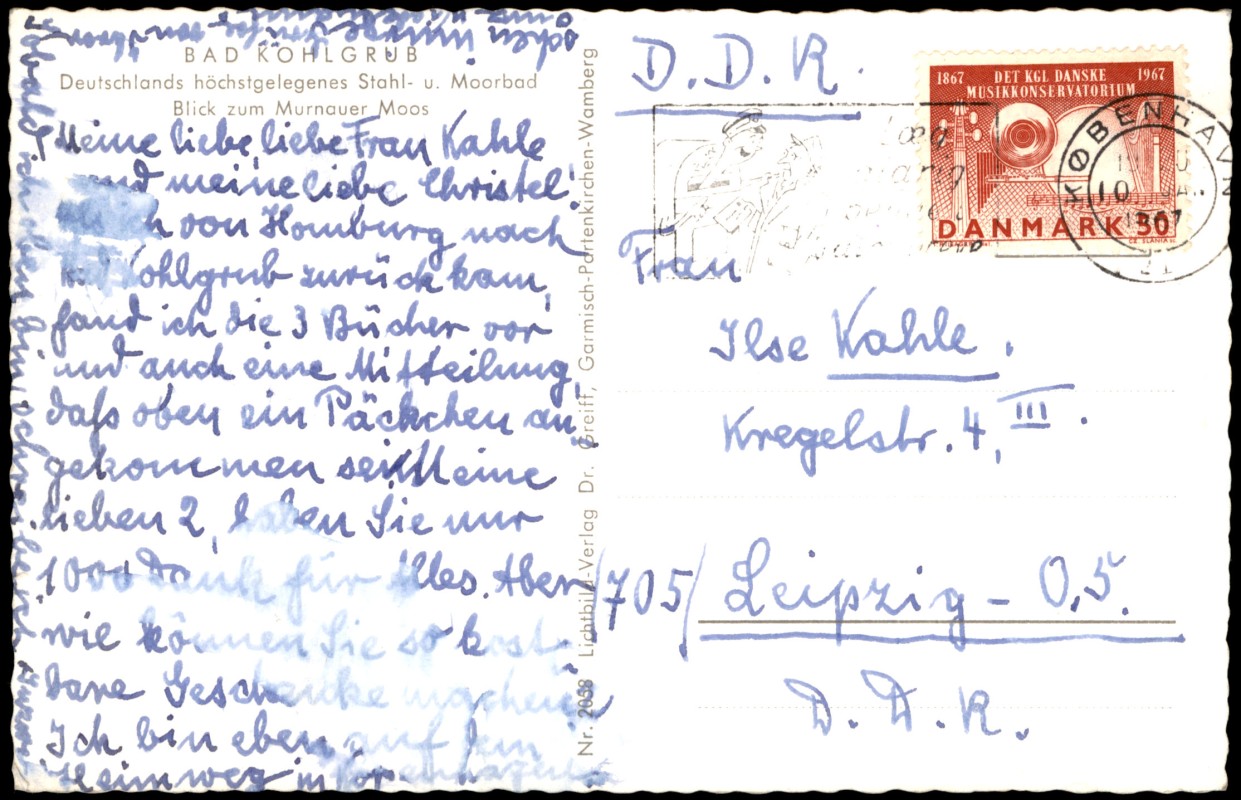 BAD KOHLGRUB
Deutschlands höchstgelegenes Stahl- u. Moorbad
Blick zum Murnauer Moos
Meine liebe, liebe Frau Kahle
und meine liebe Christel!
von Homburg nach
Bad Kohlgrub zurück kam,
fand ich die 3 Bücher vor
und auch eine Mitteilung,
daß oben ein Päckchen an-
gekommen sei. Meine
lieben 2, haben Sie nur
1000 Dank für Alles. Aber
wie können Sie so kost-
bare Geschenke machen
Ich bin eben auf dem
Heimweg in Kopenhagen
Sobald ich oben bin, schreibe ich
Nr. 2058 Lichtbild-Verlag Dr. Greiff, Garmisch-Partenkirchen-Wamberg
D.D.R.
1867 DET KGL DANSKE 1967
MUSIKKONSERVATORIUM
DANMARK 50
CZ. SLANIA
KØBENHAVN
1967
Læg
Frau
Ilse Kahle.
Kregelstr. 4, III.
/705/ Leipzig - O.5.
D.D.R.